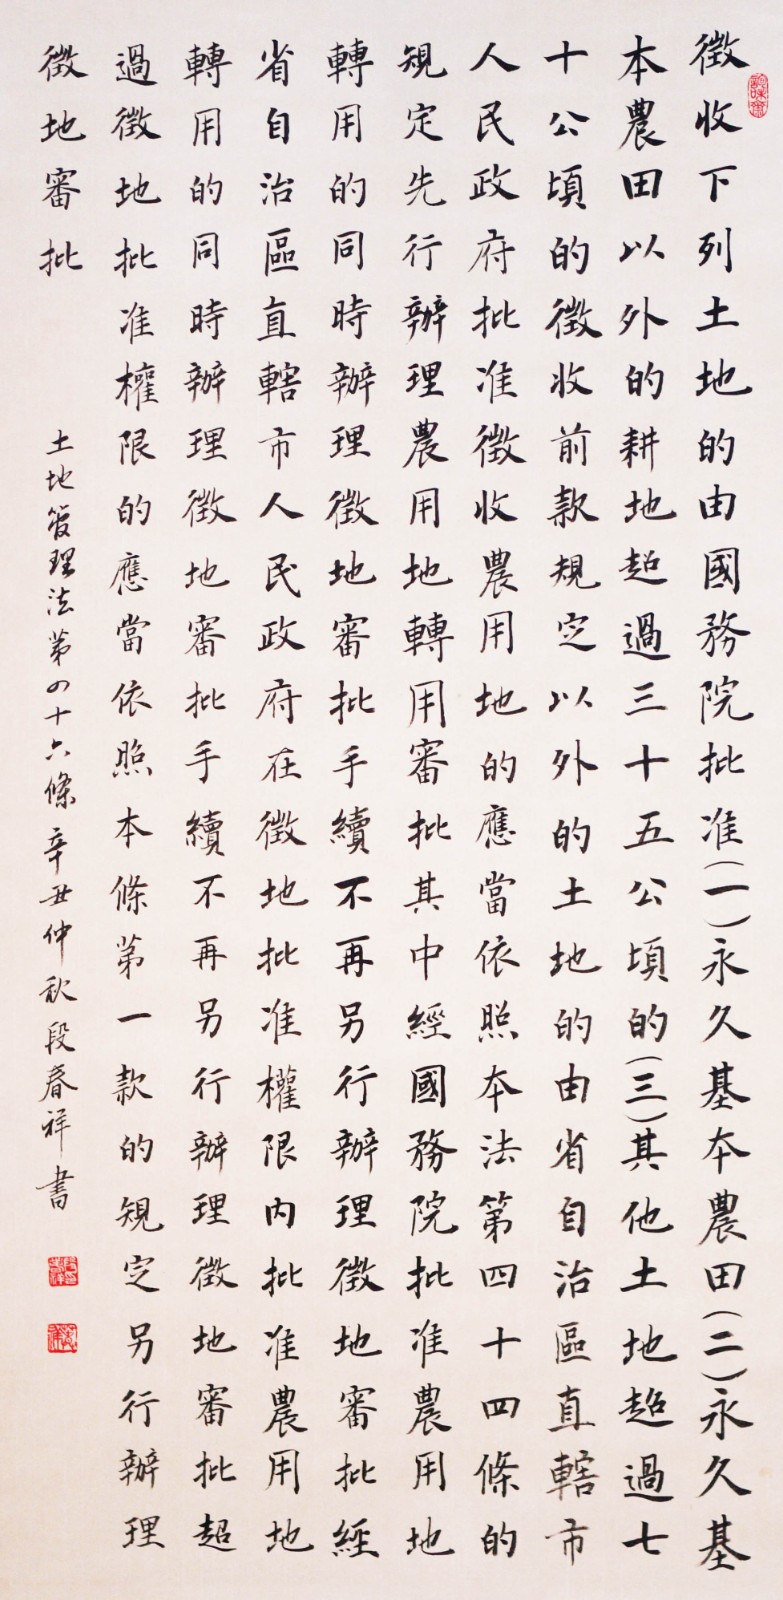 徵收下列土地的由國務院批准(一)永久基本農田(二)永久基
本農田以外的耕地超過三十五公頃的(三)其他土地超過七
十公頃的徵收前款規定以外的土地的由省自治區直轄市
人民政府批准徵收農用地的應當依照本法第四十四條的
規定先行辦理農用地轉用審批其中經國務院批准農用地
轉用的同時辦理徵地審批手續不再另行辦理徵地審批經
省自治區直轄市人民政府在徵地批准權限內批准農用地
轉用的同時辦理徵地審批手續不再另行辦理徵地審批超
過徵地批准權限的應當依照本條第一款的規定另行辦理
徵地審批
土地管理法第四十六條辛丑仲秋段春祥書